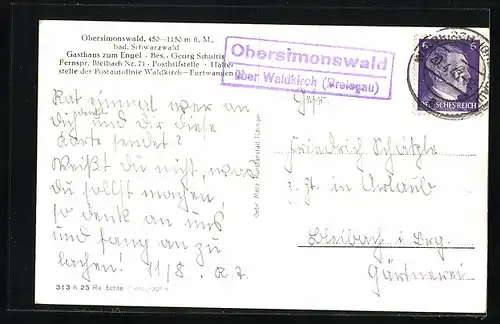 Obersimonswald, 450—1150 m ü. M.,
bad. Schwarzwald
Gasthaus zum Engel - Bes. Georg Schultis
Fernspr. Bleibach Nr. 71 - Posthilfstelle - Halte-
stelle der Postautolinie Waldkirch—Furtwangen
Obersimonswald
über Waldkirch (Breisgau)
6 6
DEUTSCHES REICH
Rat einmal wer an
Dich denkt
und Dir diese
Karte sendet?
Weißt Du nicht, was
Du sollst machen,
so denk an uns
und fang an zu
lachen! 11/8.
Friedrich Schätzle
z. Zt. in Urlaub
Bleibach i. Brg.
Gärtnerei
Gebr. Metz, Kunstanstalt, Tübingen
313 K 25 Re Echte Photographie